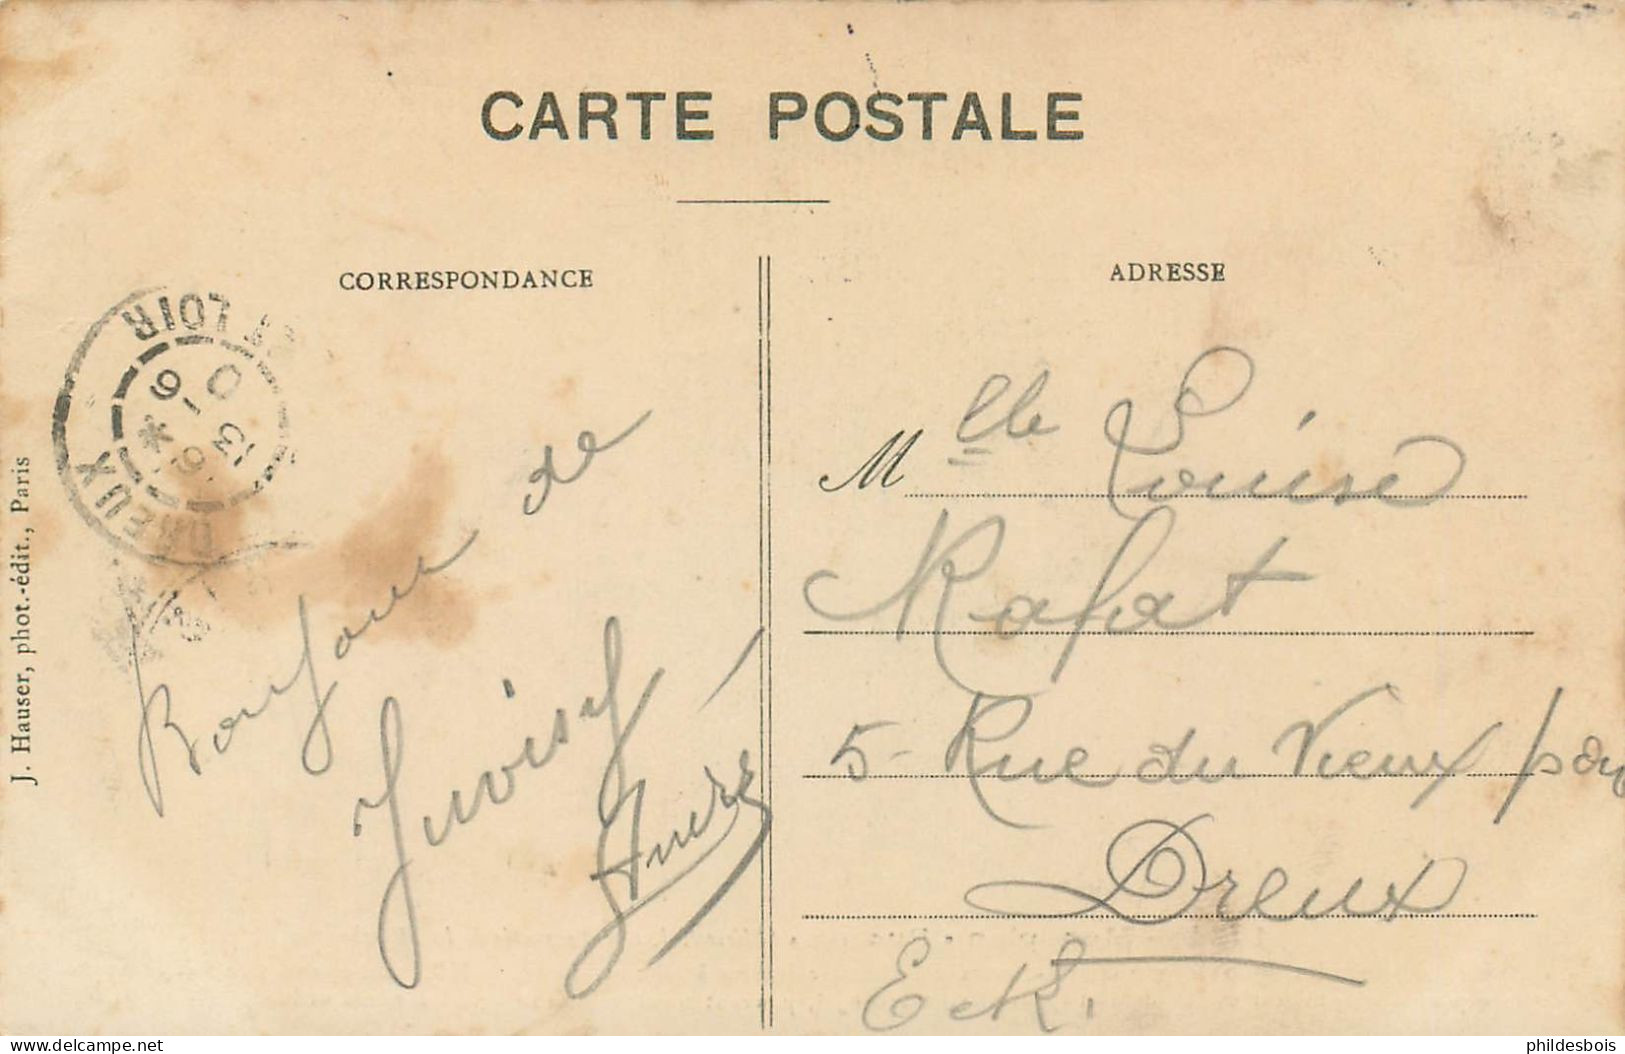 CARTE POSTALE
CORRESPONDANCE
ADRESSE
DREUX
ET LOIR
J. Hauser, phot.-édit., Paris
Bonjour de
Juvisy
André
Mlle Louise
Rafat
5 - Rue du Vieux pav
Dreux
E et L.
delcampe.net
phildesbois